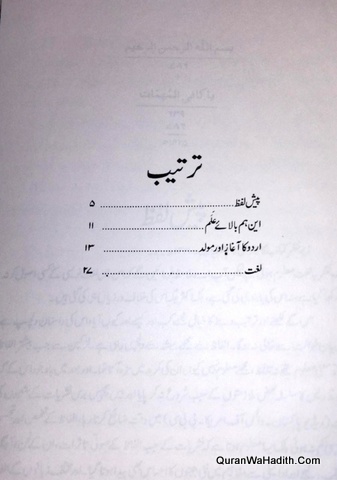 ترتیب
پیش لفظ ........................ ۵
این ہم بالائے علَم ........................ ۱۱
اردو کا آغاز اور مولد ........................ ۱۳
لغت ........................ ۲۷
QuranWaHadith.Com